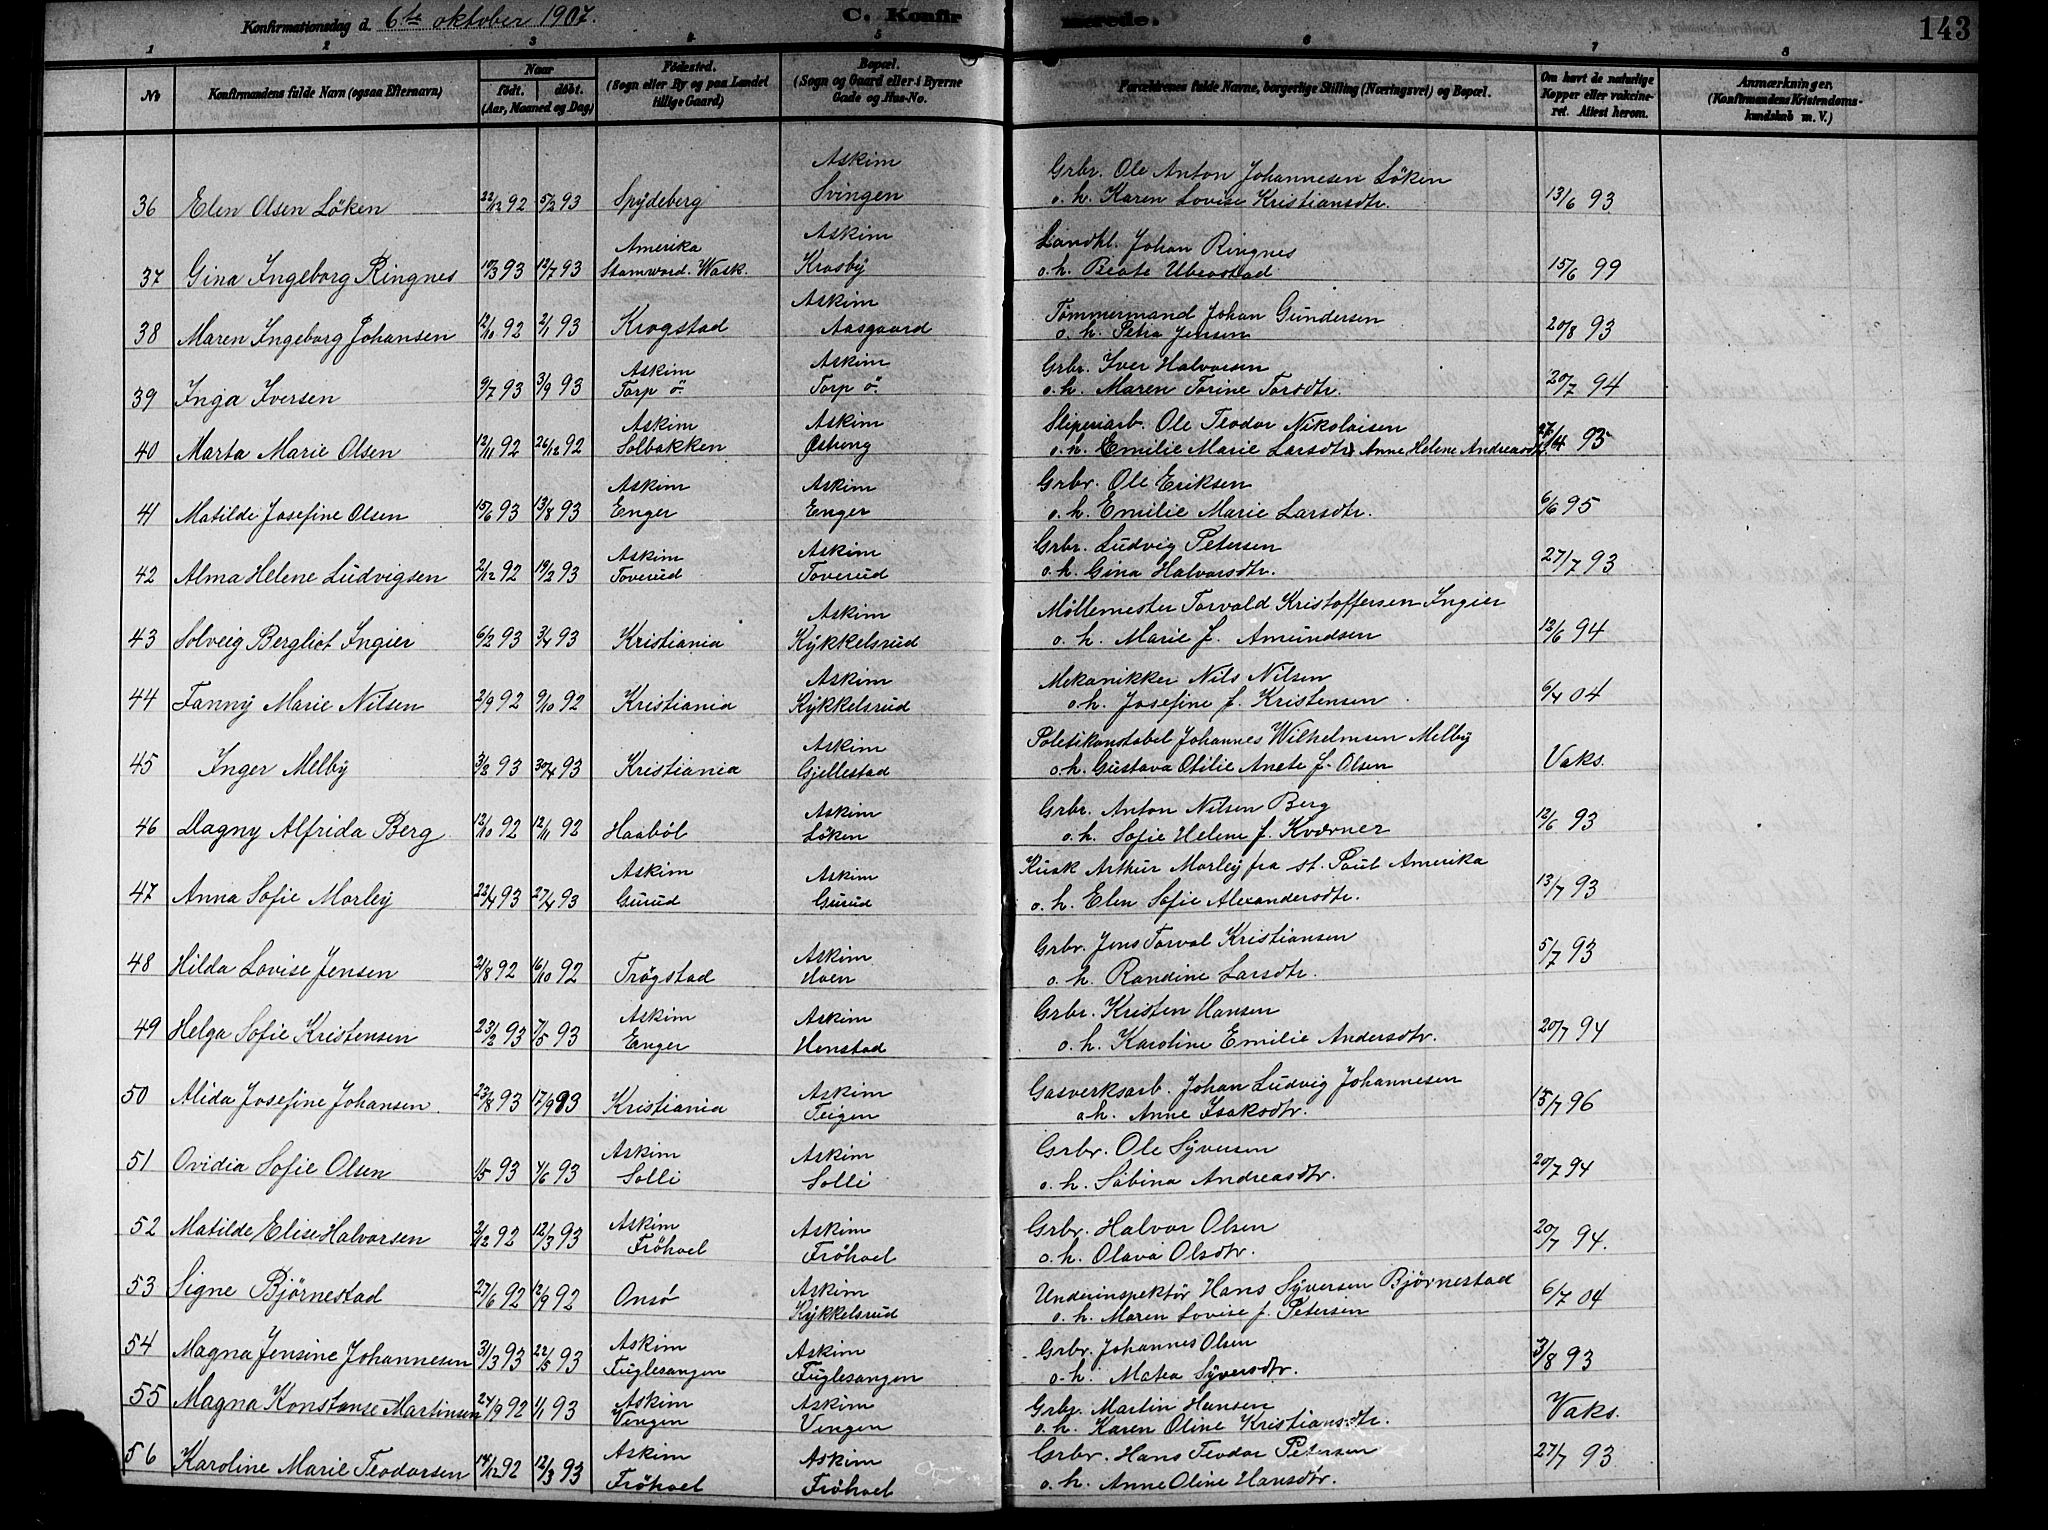 Konfirmationsdag d. 6te oktober 1907.
C. Konfirmerede.
143
1 2 3 4 5 6 7 8
No
Konfirmandens fulde Navn (ogsaa Efternavn)
Naar
født. døbt.
(Aar, Maaned og Dag)
Fødested.
(Sogn eller By og paa Landet
tillige Gaard)
Bopæl.
(Sogn og Gaard eller i Byerne
Gade og Hus-No.
Forældrenes fulde Navne, borgerlige Stilling (Næringsvei) og Bopæl.
Om havt de naturlige
Kopper eller vakcine-
ret. Attest herom.
Anmærkninger.
(Konfirmandens Kristendoms-
kundskab m. V.)
Askim Grbr. Ole Anton Johannesen Löken
36 Elen Olsen Löken 22/12 92 5/2 93 Spydeberg Svingen o. h. Karen Lovise Kristiansdtr. 13/6 93
Amerika Askim Landhl. Johan Ringnes
37 Gina Ingeborg Ringnes 10/3 93 12/7 93 Stamword. Wask. Krosby o. h. Beate 15/6 99
Askim Tømmermand Johan Gundersen
38 Maren Ingeborg Johansen 12/10 92 2/1 93 Krogstad Aasgaard o. h. Petra Jensen 20/8 93
Askim Askim Grbr. Iver Halvorsen
39 Inga Iversen 9/7 93 3/9 93 Torp ö. Torp ö. o. h. Maren Torine Torsdtr. 20/7 94
Askim Askim Sliperiarb. Ole Teodor Nikolaisen
40 Marta Marie Olsen 12/11 92 26/12 92 Solbakken Østeng o. h. Emilie Marie Larsdtr) Anne Helene Andreasdtr. 27/4 95
Askim Askim Grbr. Ole Eriksen
41 Matilde Josefine Olsen 15/6 93 13/8 93 Enger Enger o. h. Emilie Marie Larsdtr. 6/6 95
Askim Askim Grbr. Ludvig Petersen
42 Alma Helene Ludvigsen 2/12 92 19/2 93 Toverud Toverud o. h. Gina Halvorsdtr. 27/7 93
Askim Möllemester Torvald Kristoffersen Ingier
43 Solveig Bergliot Ingier 6/2 93 3/4 93 Kristiania Kykkelsrud o. h. Marie f. Amundsen 12/6 94
Askim Mekanikker Nils Nilsen
44 Fanny Marie Nilsen 2/9 92 9/10 92 Kristiania Kykkelsrud o. h. Josefine f. Kristensen 6/4 04
Askim Politikonstabel Johannes Wilhelmsen Melby
45 Inger Melby 3/2 93 30/4 93 Kristiania Gjellestad o. h. Gustava Otilie Anete f. Olsen Vaks.
Askim Grbr. Anton Nilsen Berg
46 Dagny Alfrida Berg 12/10 92 12/11 92 Haaböl Löken o. h. Sofie Helene f. Kværner 12/6 93
Askim Askim Kusk Arthur Morley fra st. Paul Amerika
47 Anna Sofie Morley 22/4 93 27/4 93 Gurud Gurud o. h. Elen Sofie Alexandersdtr. 13/7 93
Askim Grbr. Jens Torval Kristiansen
48 Hilda Lovise Jensen 21/8 92 16/10 92 Trögstad Hoen o. h. Randine Larsdtr. 5/7 93
Askim Askim Grbr. Kristen Hansen
49 Helga Sofie Kristensen 23/2 93 7/5 93 Enger Henstad o. h. Karoline Emilie Andersdtr. 20/7 94
Askim Gasverksarb. Johan Ludvig Johannesen
50 Alida Josefine Johansen. 23/8 93 17/9 93 Kristiania Teigen o. h. Anne Isaksdtr. 15/7 96
Askim Askim Grbr. Ole Syversen
51 Ovidia Sofie Olsen 1/5 93 4/6 93 Solli Solli o. h. Sabina Andreasdtr. 20/7 94
Askim Askim Grbr. Halvor Olsen
52 Matilde Elise Halvorsen 2/12 92 12/3 93 Fröhoel Fröhoel o. h. Olava Olsdtr. 20/7 94.
Askim Underinspektör Hans Syversen Bjørnestad
53 Signe Björnestad 27/6 92 12/9 92 Onsö Kykkelsrud o. h. Maren Lovise f. Petersen 6/7 04
Askim Askim Grbr. Johannes Olsen
54 Magna Jensine Johannesen 31/3 93 22/5 93 Fuglesangen Fuglesangen o. h. Matea Syversdtr. 3/8 93
Askim Askim Grbr. Martin Hansen
55 Magna Konstanse Martinsen 24/9 92 1/1 93 Vengen Vengen o. h. Karen Oline Kristiansdtr. Vaks.
Askim Askim Grbr. Hans Teodor Petersen
56 Karoline Marie Teodorsen 14/12 92 12/3 93 Fröhoel Fröhoel o. h. Anne Oline Hansdtr. 27/7 93